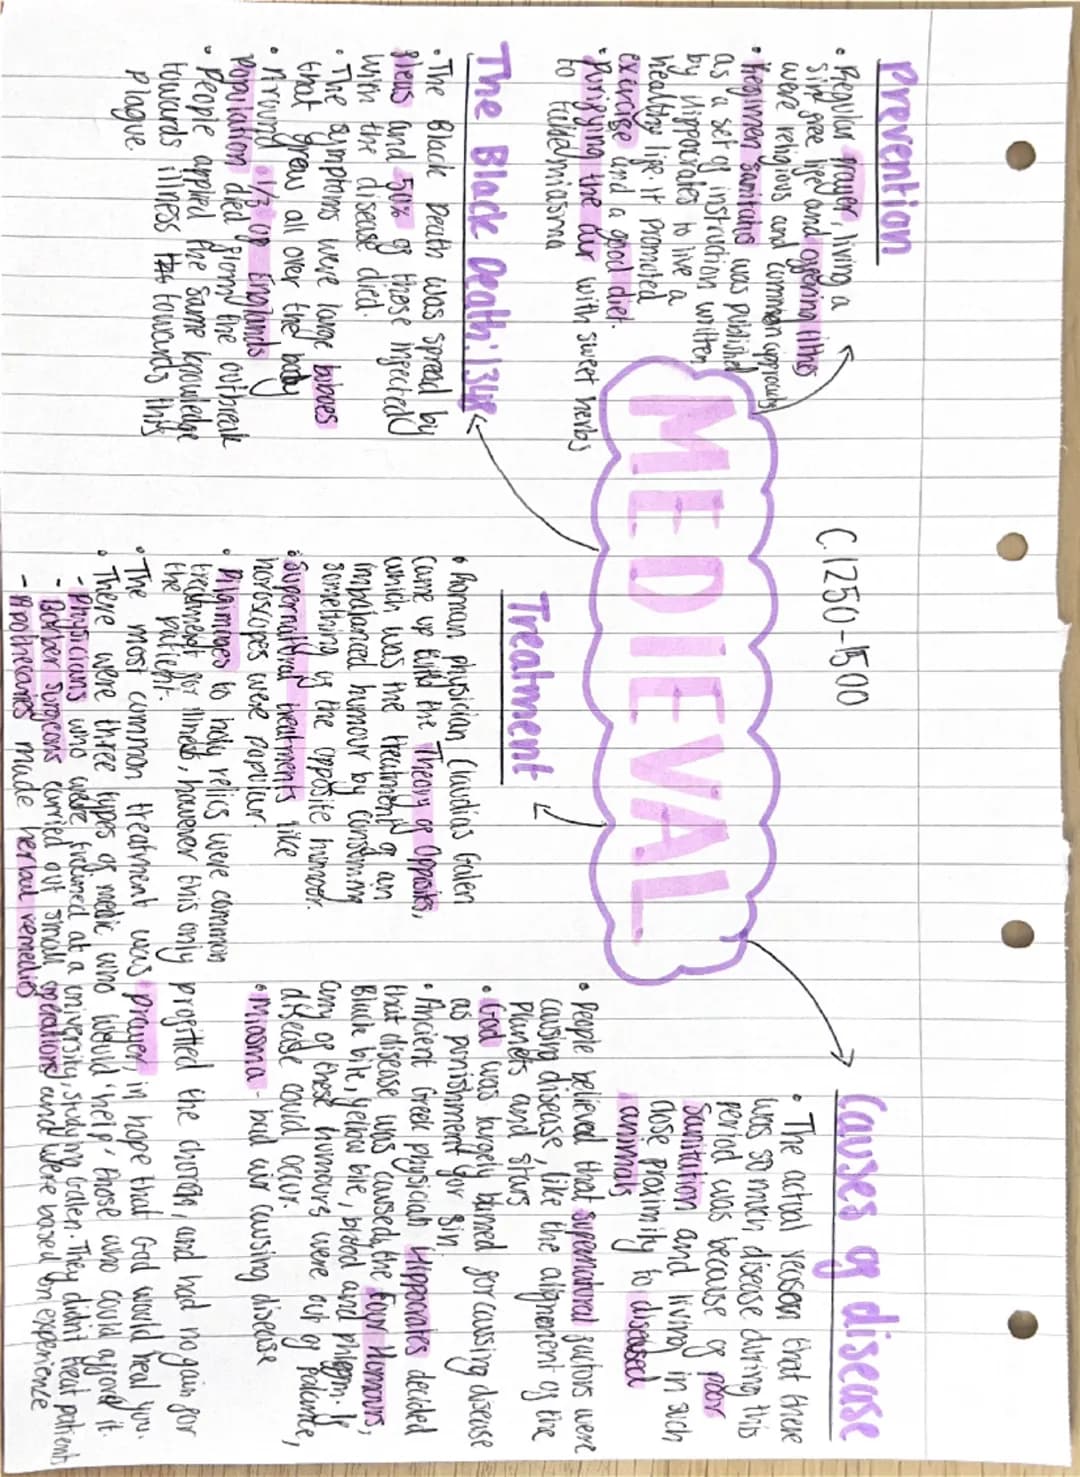 C.1250-1500
MEDIEVAL
Prevention
• Regular prayer, living a
sin free life and offering tithes
were religious and common approach
• Regimen Sanitatis was published
as a set of instruction written
by Hippocrates to live a
healthy life it promoted
exercise and a good diet.
• Purifying the air with sweet herbs
to
The Black Death: 1348
• The Black Death was spread by
fleas and 50% of those infected
with the disease died.
• The symptoms were large buboes
that grew all over the body
• Around 1/3 of Englands
population died from the outbreak
• People applied the same knowledge
towards illness towards this
plague.
Treatment
• Roman physician Claudias Galen
came up with the Theory of Opposits,
which was the treatment of an
imbalanced humour by consuming
something of the opposite humour.
• Supernatural treatments like
horoscopes were popular.
• Pilgrimages to holy relics were common
treatment for illness, however this only profitted the church, and had no gain for
the patient.
• The most common treatment was prayer, in hope that God would heal you.
• There were three types of medic who would 'help' those who could afford it.
- Physicians who were trained at a university, studying Galen. They didn't treat patients
- Barber surgeons carried out small operations and were based on experience
- Apothecaries made herbal remedies
Causes of disease
• The actual reason that there
was so much disease during this
period was because of poor
sanitation and living in such
close proximity to diseased
animals
• People believed that supernatural factors were
causing disease, like the alignment of the
planets and stars
• God was largely blamed for causing disease
as punishment for sin
• Ancient Greek physician Hippocrates decided
that disease was caused the Four Humours,
Black bile, yellow bile, blood and phlegm. If
any of these humours were out of balance,
disease could occur.
• Miasma - bad air causing disease